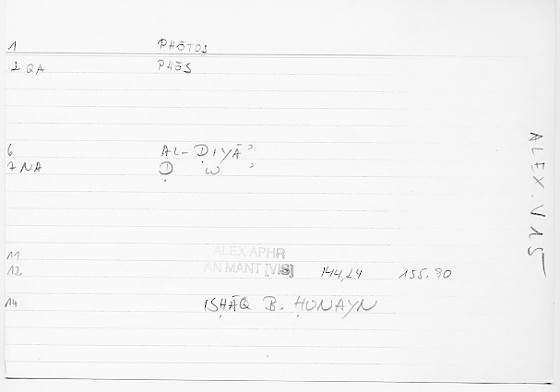 1 PHŌTOS
2 QA PHŌS
6 AL-ḌIYĀʾ
7 NA Ḍ W ʾ
11 ALEX APHR
12 AN MANT [VIS] 144,24 155.90
14 ISḤĀQ B. ḤUNAYN
ALEX. VIS